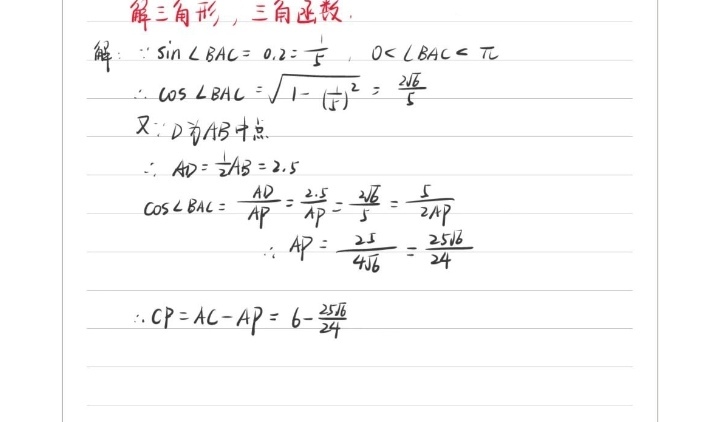 解三角形，三角函数.
解：∵ sin∠BAC = 0.2 = 1/5 , 0<∠BAC<π
∴ cos∠BAC = √(1-(1/5)²) = 2√6/5
又∵D为AB中点
∴ AD = 1/2AB = 2.5
cos∠BAC = AD/AP = 2.5/AP = 2√6/5 = 5/2AP
∴ AP = 25/4√6 = 25√6/24
∴ CP = AC - AP = 6 - 25√6/24